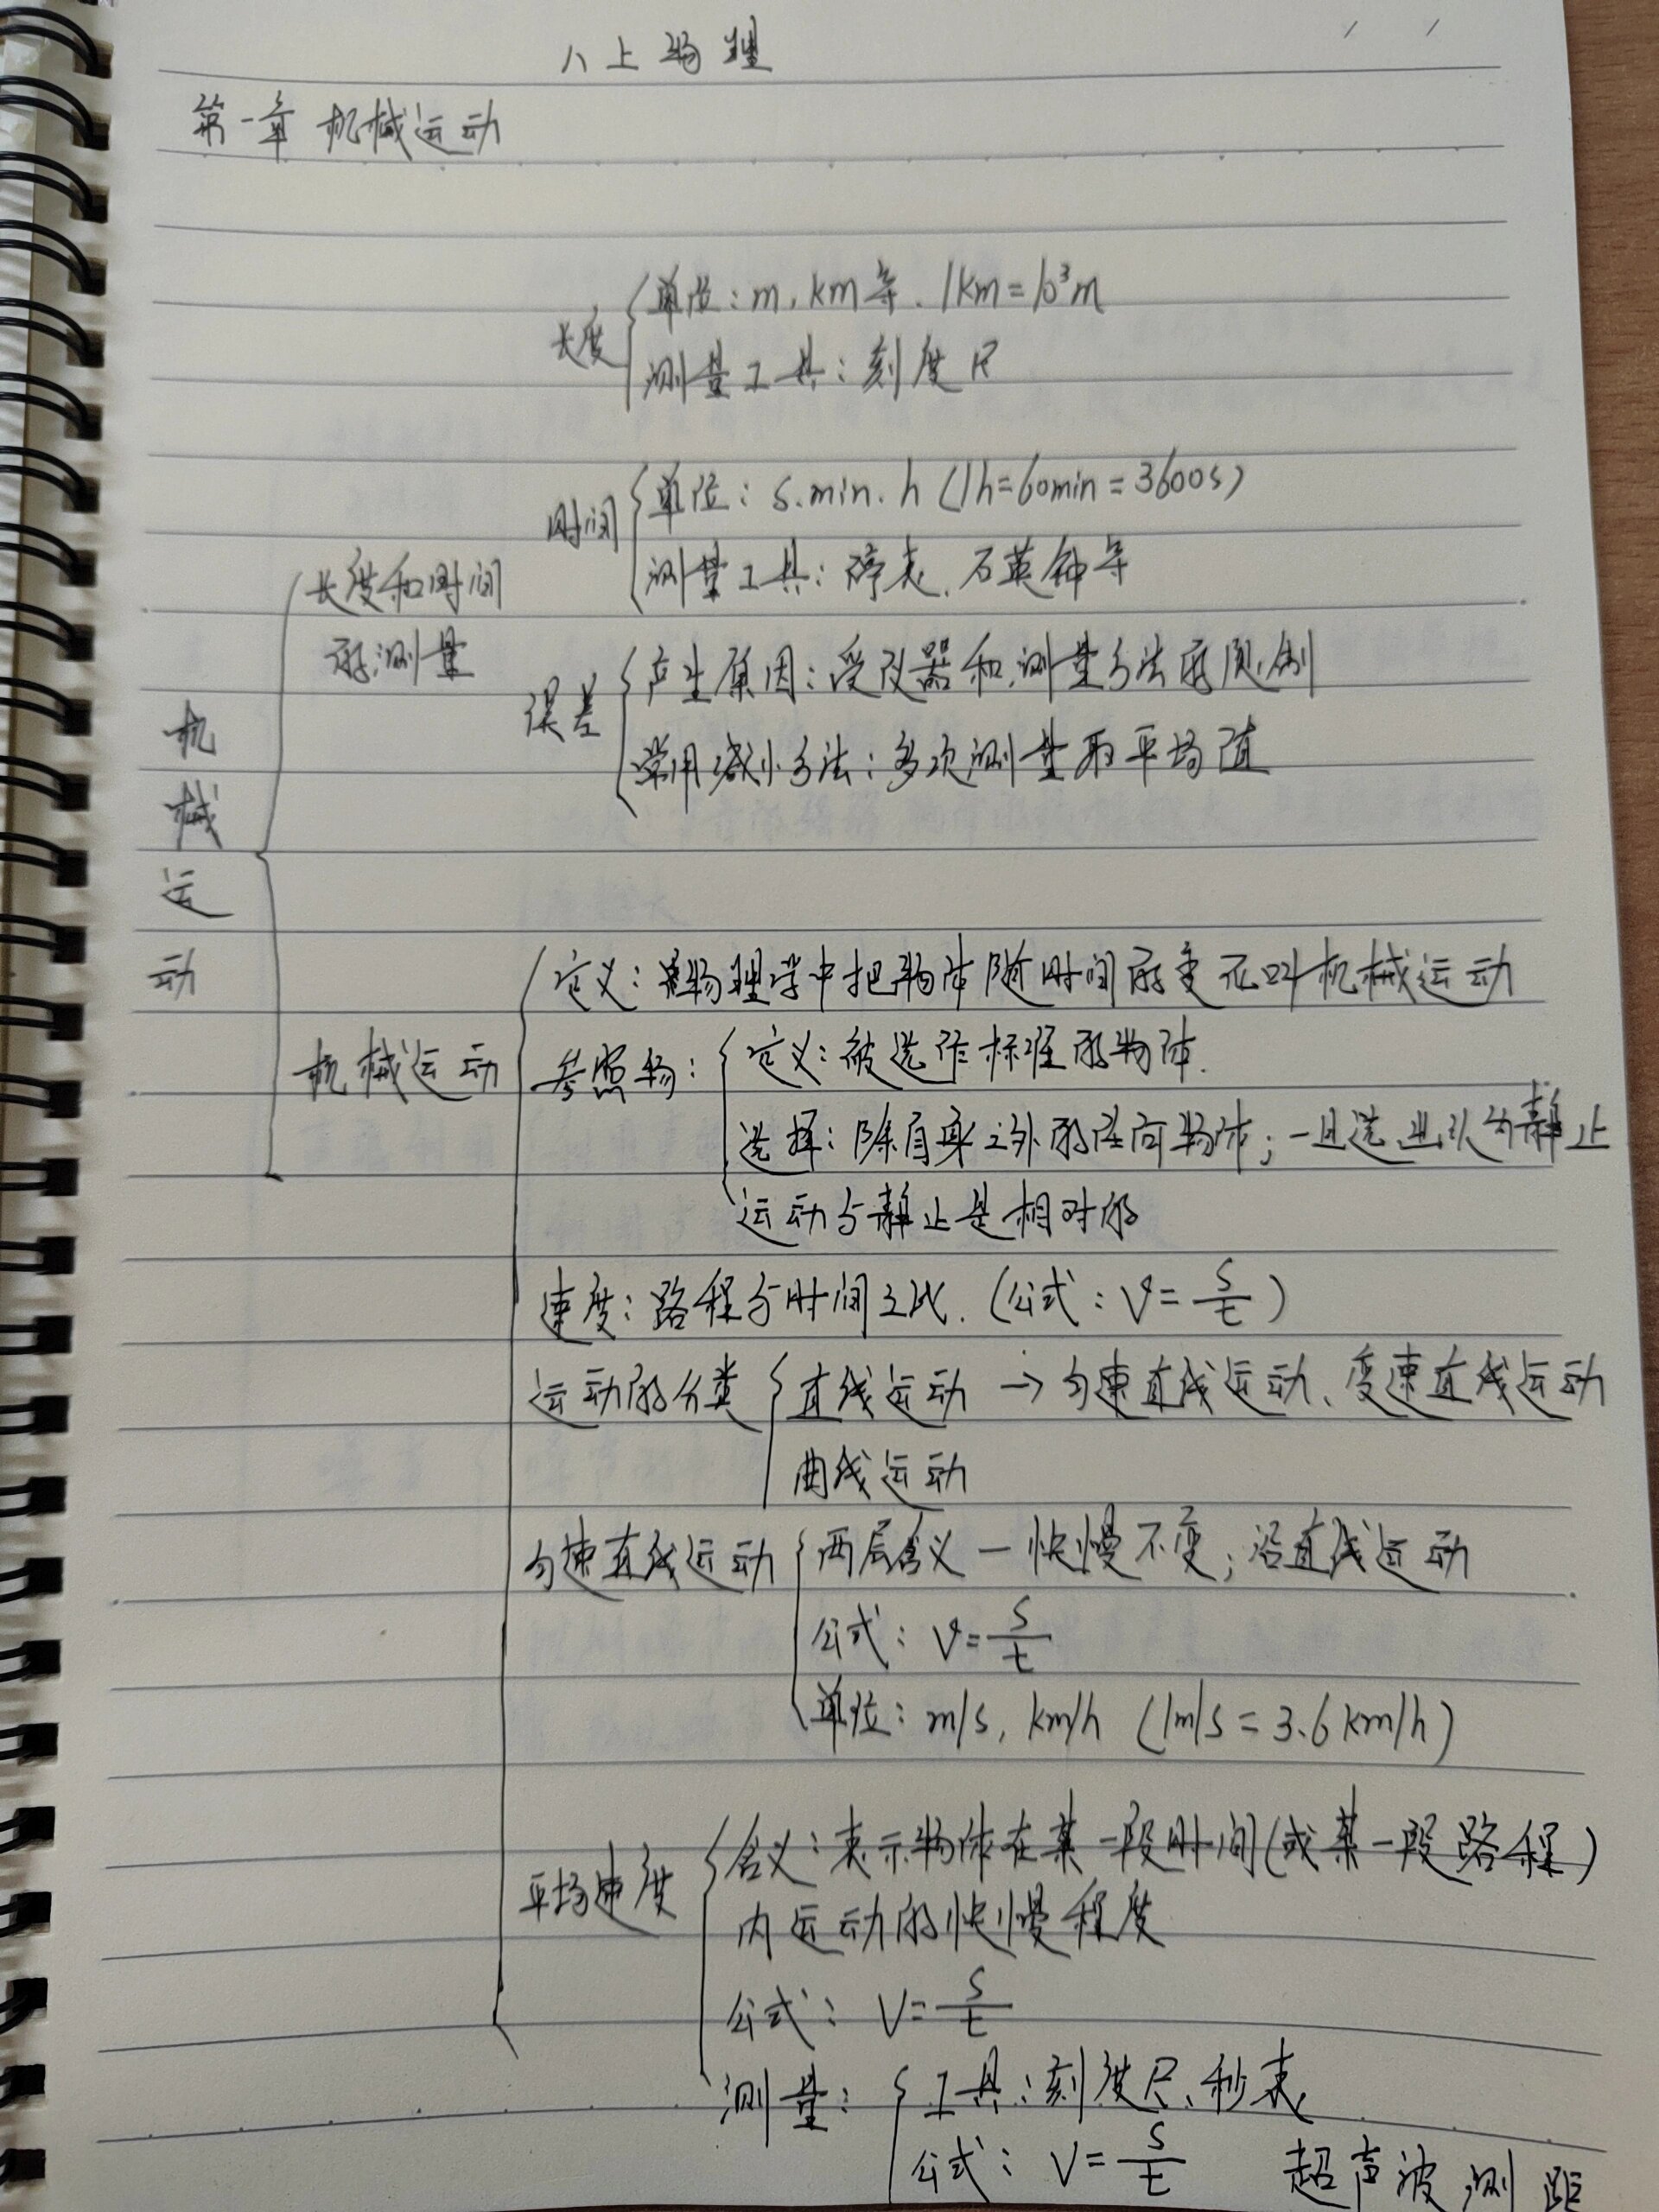 八上物理
第一章 机械运动
长度
单位：m，km等．1km=10³m
测量工具：刻度尺
时间
单位：s．min．h（1h=60min=3600s）
测量工具：停表、石英钟等
长度和时间
的测量
误差
产生原因：受仪器和测量方法的限制
常用减小方法：多次测量取平均值
机械运动
机械运动
定义：物理学中把物体随时间的变化叫机械运动
参照物：
定义：被选作标准的物体．
选择：除自身之外的任何物体；一旦选 认为静止
运动与静止是相对的
速度：路程与时间之比．（公式：v=s/t）
运动的分类
直线运动→匀速直线运动、变速直线运动
曲线运动
匀速直线运动
两层含义—快慢不变；沿直线运动
公式：v=s/t
单位：m/s，km/h（1m/s=3.6km/h）
平均速度
含义：表示物体在某一段时间（或某一段路程）
内运动的快慢程度
公式：v=s/t
测量：
工具：刻度尺、秒表
公式：v=s/t 超声波测距